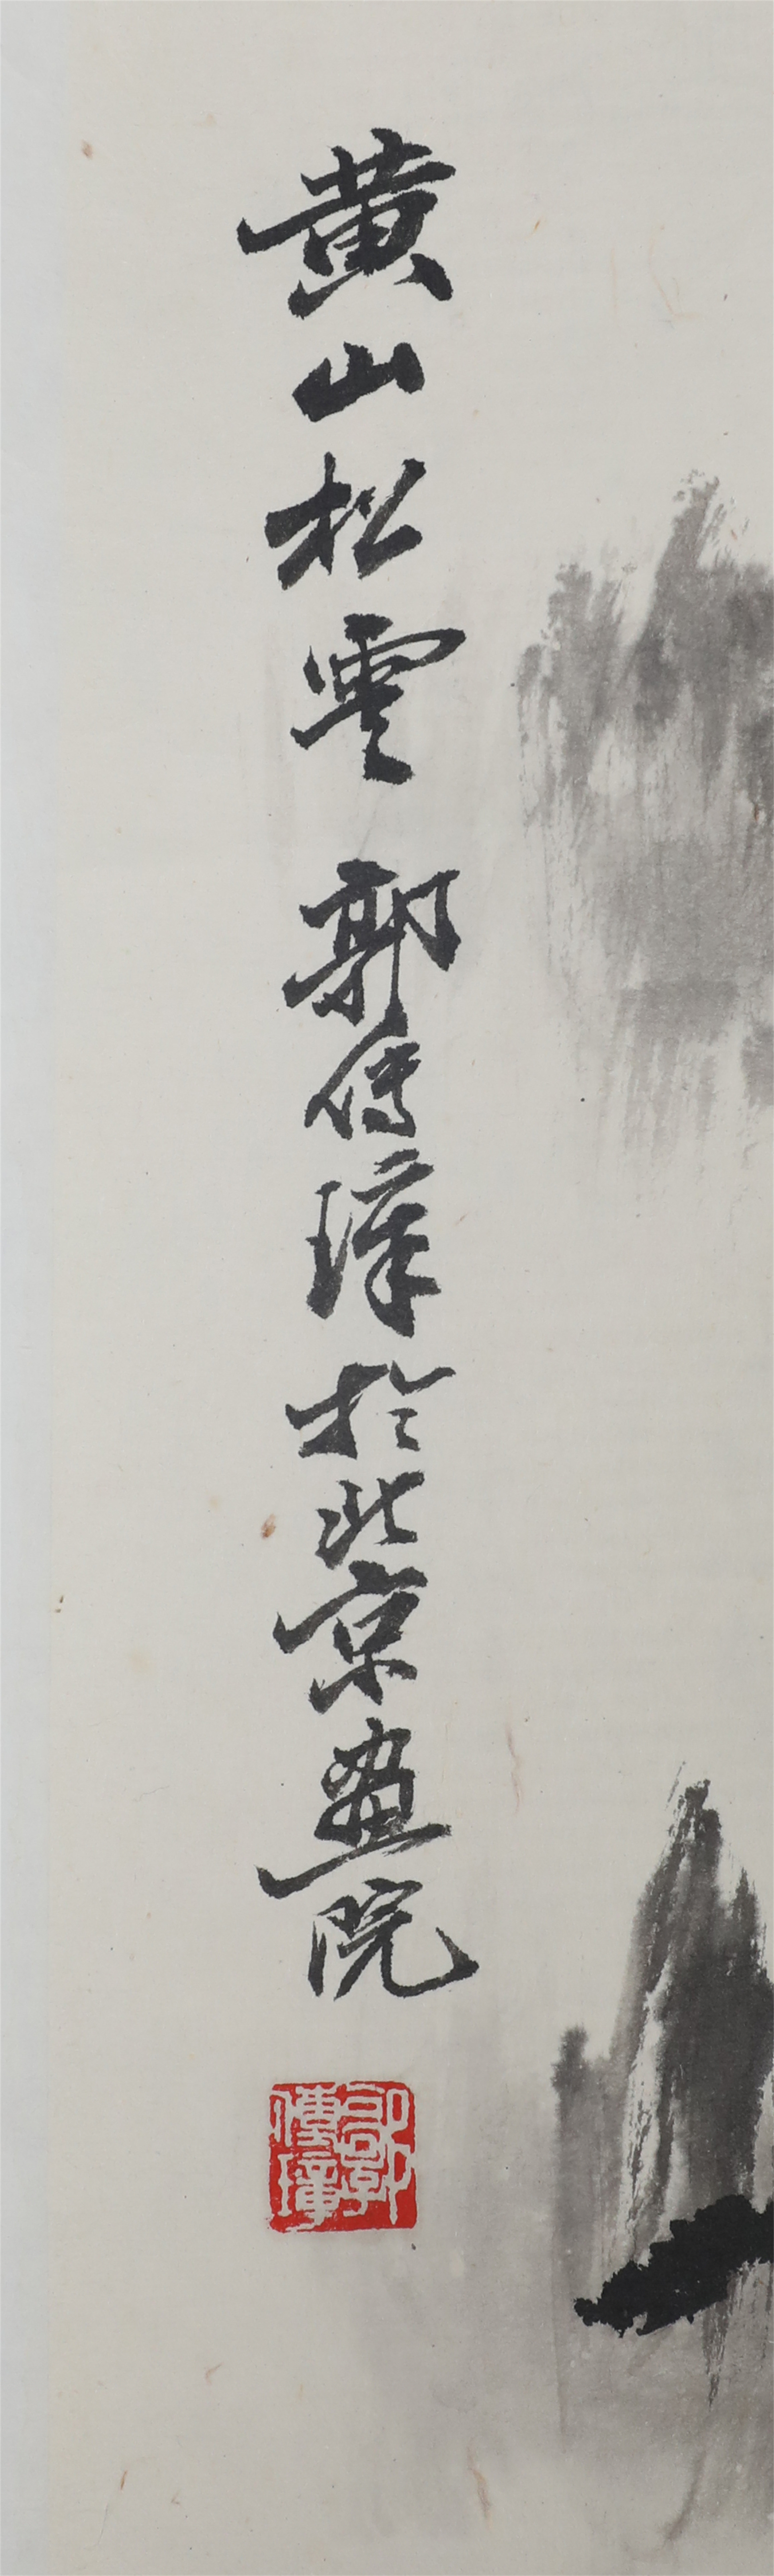 黄山松雲 郭傳璋於北京畫院
郭傳璋